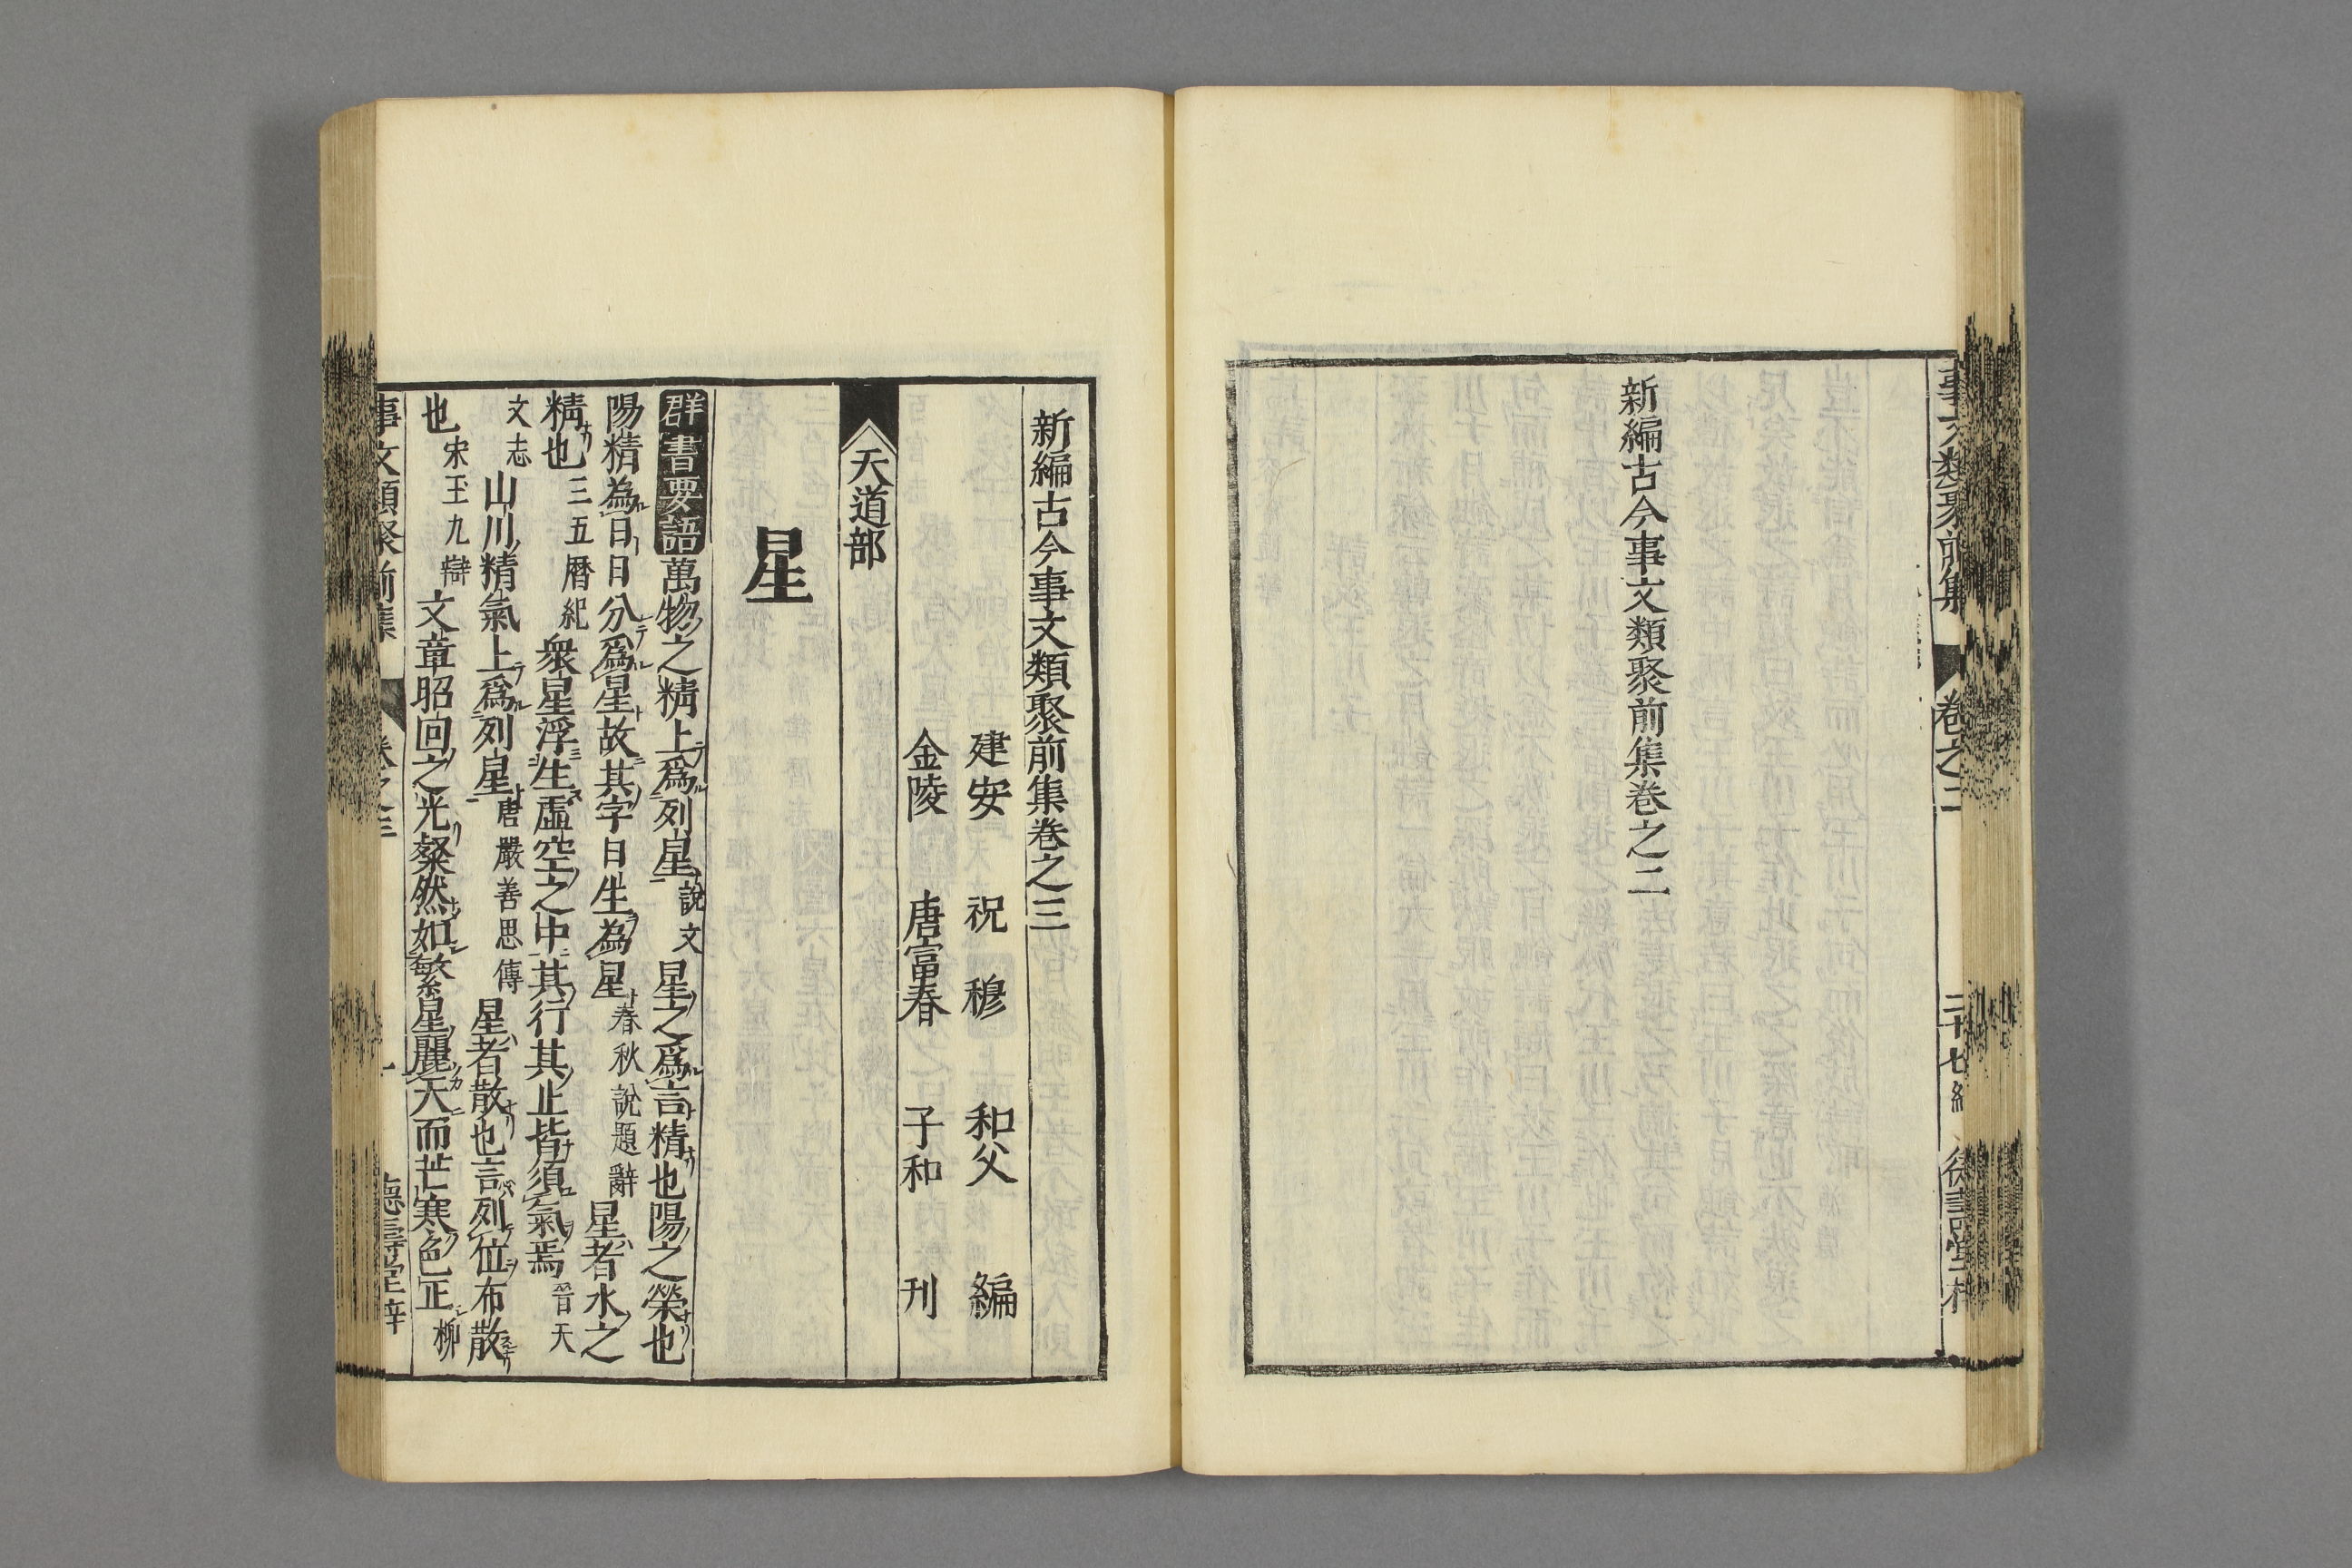 事文類聚前集 卷之二 三十七終
新編古今事文類聚前集卷之二
新編古今事文類聚前集卷之三
建安 祝穆 和父 編
金陵 唐富春 子和 刊
天道部
星
群書要語萬物之精上爲列星說文星之爲言精也陽之榮也
陽精為日日分爲星故其字日生為星春秋說題辭星者水之
精也三五曆紀衆星浮生虛空之中其行其止皆須氣焉晉天
文志山川精氣上爲列星唐嚴善思傳星者散也言列位布散
也宋玉九辯文章昭回之光粲然如繁星麗天而芒寒色正柳
事文類聚前集 卷之三 一 德壽堂梓